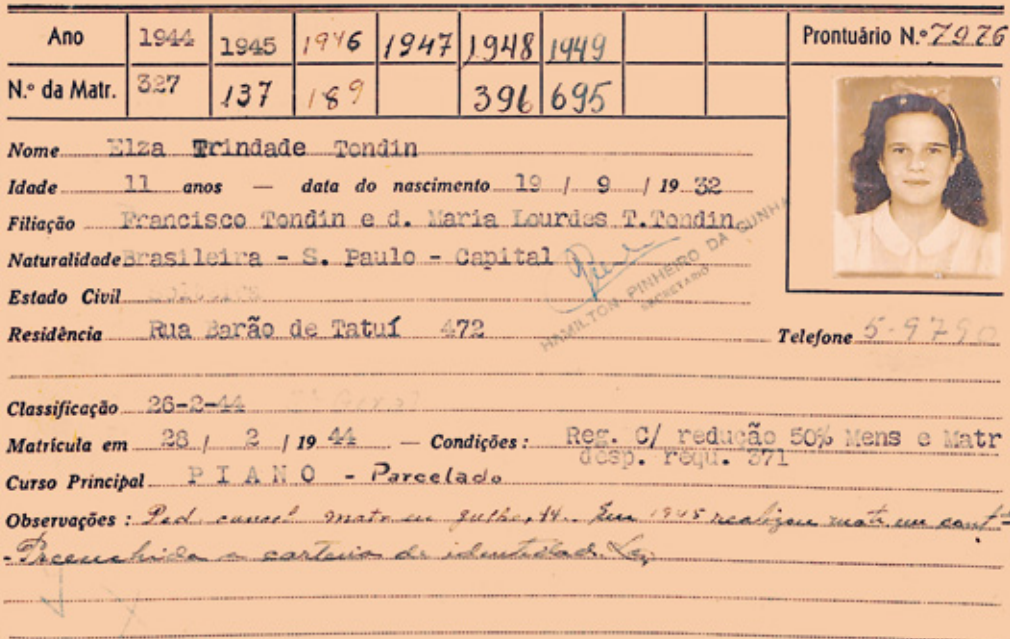 Ano 1944 1945 1946 1947 1948 1949 Prontuário N.º 7976
N.º da Matr. 327 137 189 396 695
Nome Elza Trindade Tondin
Idade 11 anos — data do nascimento 19 / 9 / 19 32
Filiação Francisco Tondin e d. Maria Lourdes T.Tondin
Naturalidade Brasileira - S. Paulo - Capital
HAMILTON PINHEIRO DA CUNHA
SECRETARIO
Estado Civil Solteira
Residência Rua Barão de Tatuí 472 Telefone 5-9790
Classificação 26-2-44
Matrícula em 28 / 2 / 19 44 — Condições : Reg. C/ redução 50% Mens e Matr
desp. requ. 371
Curso Principal P I A N O - Parcelado
Observações : Ped. cancel matr em Julho, 44. Em 1945 realizou matr. em
- Preenchida a carteira de identidade